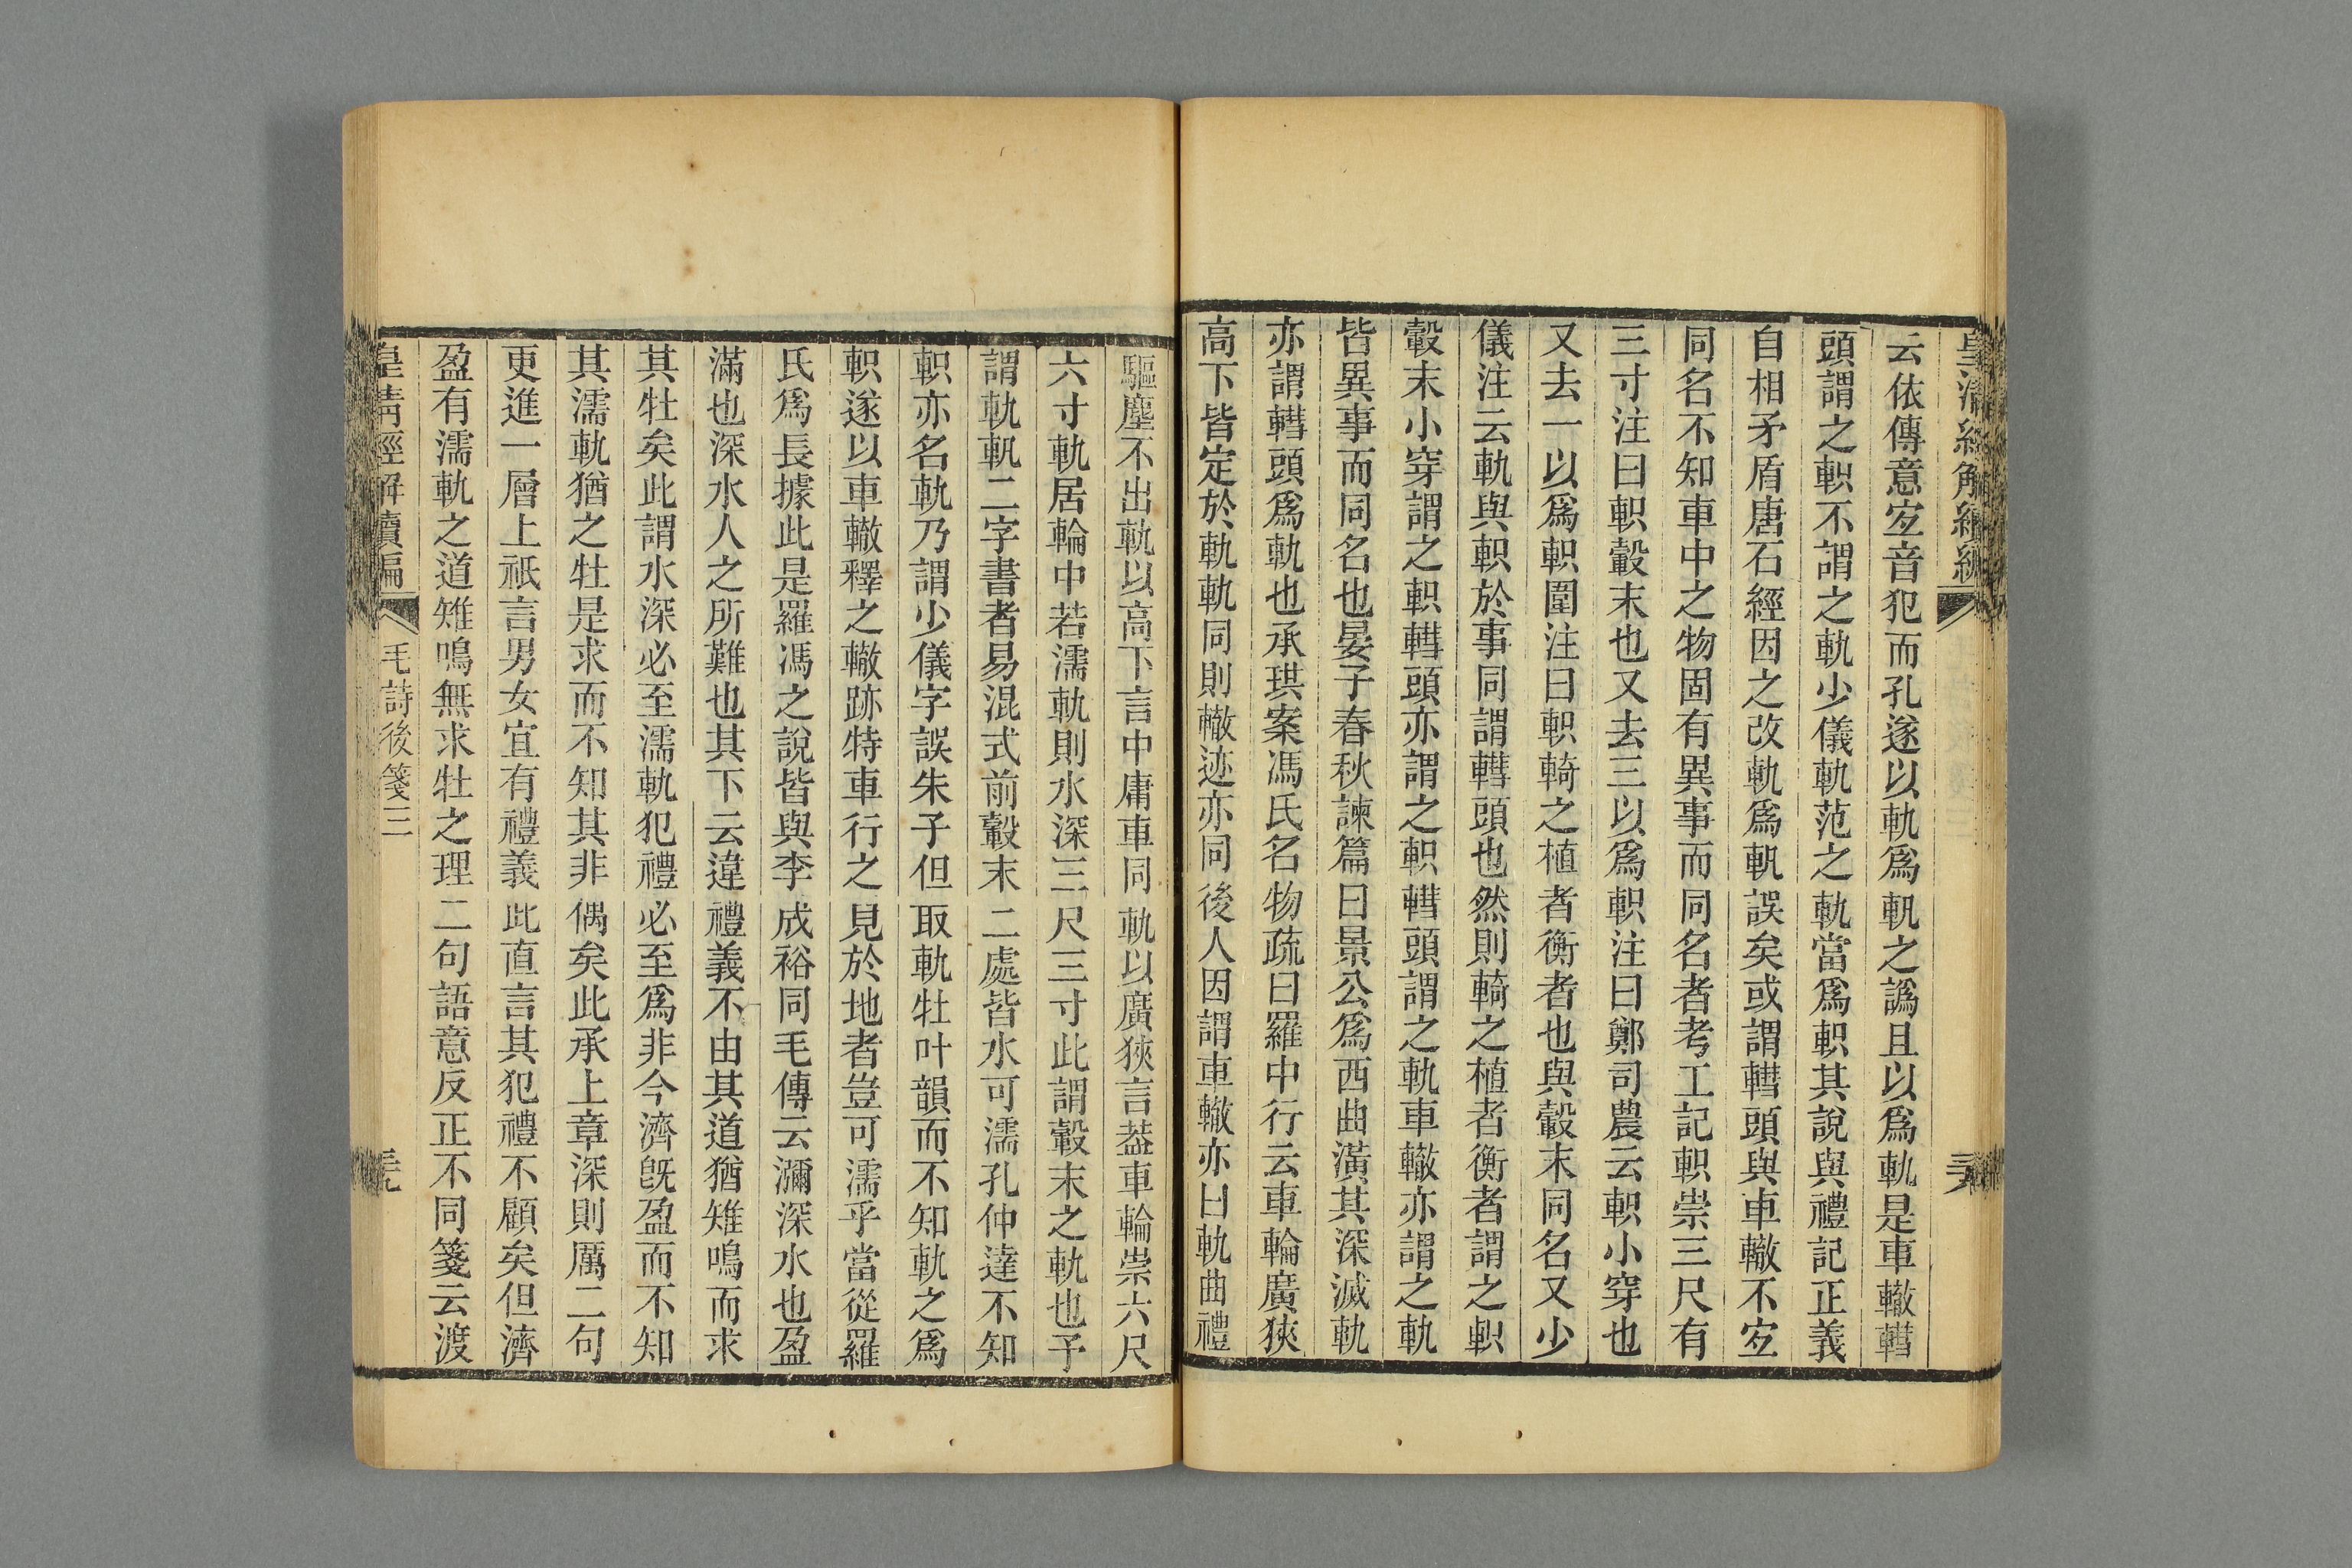 皇清經解續編
云依傳意宐音犯而孔遂以軌爲軓之譌且以爲軌是車轍轊
頭謂之軹不謂之軌少儀軌范之軌當爲軹其說與禮記正義
自相矛盾唐石經因之改軌爲軓誤矣或謂轊頭與車轍不宐
同名不知車中之物固有異事而同名者考工記軹崇三尺有
三寸注曰軹轂末也又去三以爲軹注曰鄭司農云軹小穿也
又去一以爲軹圍注曰軹輢之植者衡者也與轂末同名又少
儀注云軌與軹於事同謂轊頭也然則輢之植者衡者謂之軹
轂末小穿謂之軹轊頭亦謂之軹轊頭謂之軌車轍亦謂之軌
皆異事而同名也晏子春秋諫篇曰景公爲西曲潢其深滅軌
亦謂轊頭爲軌也承珙案馮氏名物疏曰羅中行云車輪廣狹
高下皆定於軌軌同則轍迹亦同後人因謂車轍亦曰軌曲禮
驅塵不出軌以高下言中庸車同軌以廣狹言葢車輪崇六尺
六寸軌居輪中若濡軌則水深三尺三寸此謂轂末之軌也予
謂軌軓二字書者易混式前轂末二處皆水可濡孔仲達不知
軹亦名軌乃謂少儀字誤朱子但取軌牡叶韻而不知軌之爲
軹遂以車轍釋之轍跡特車行之見於地者豈可濡乎當從羅
氏爲長據此是羅馮之說皆與李成裕同毛傳云瀰深水也盈
滿也深水人之所難也其下云違禮義不由其道猶雉鳴而求
其牡矣此謂水深必至濡軌犯禮必至爲非今濟旣盈而不知
其濡軌猶之牡是求而不知其非偶矣此承上章深則厲二句
更進一層上祇言男女宜有禮義此直言其犯禮不顧矣但濟
盈有濡軌之道雉鳴無求牡之理二句語意反正不同箋云渡
皇清經解續編 毛詩後箋三